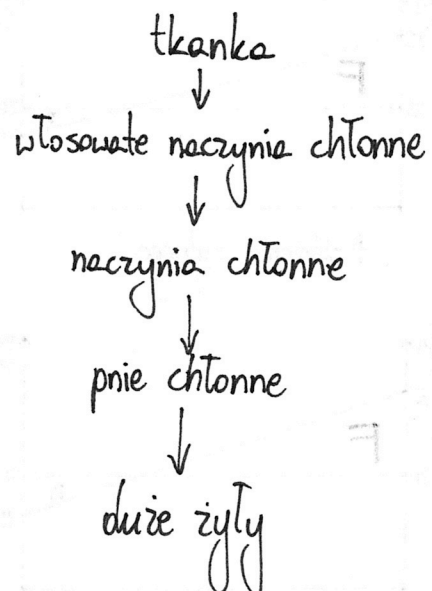 tkanka
↓
włosowate naczynia chłonne
↓
naczynia chłonne
↓
pnie chłonne
↓
duże żyły